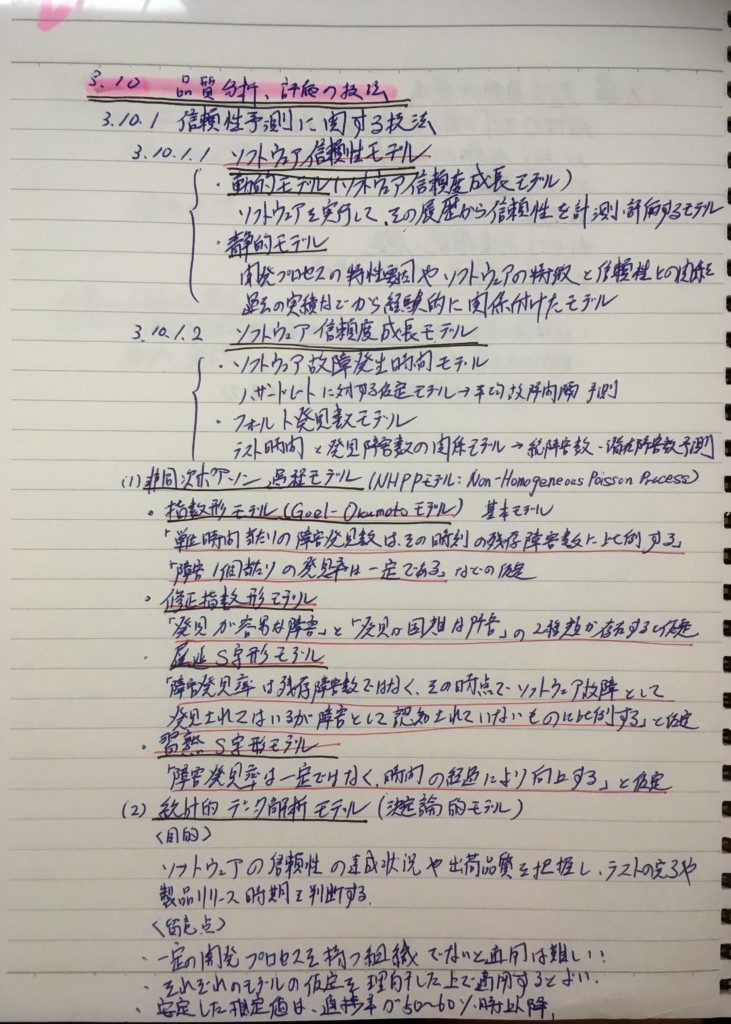 3.10 品質分析、評価の技法
3.10.1 信頼性予測に関する技法
3.10.1.1 ソフトウェア信頼性モデル
・動的モデル(ソフトウェア信頼度成長モデル)
ソフトウェアを実行して、その履歴から信頼性を計測・評価するモデル
・静的モデル
開発プロセスの特性要因やソフトウェアの特徴と信頼性との関係を
過去の実績などから経験的に関係付けたモデル
3.10.1.2 ソフトウェア信頼度成長モデル
・ソフトウェア故障発生時間モデル
ハザードレートに対する仮定モデル→平均故障時間間隔予測
・フォールト発見数モデル
テスト時間と発見障害数の関係モデル→総障害数・潜在障害数予測
(1)非同次ポアソン過程モデル(NHPPモデル:Non-Homogeneous Poisson Process)
・指数形モデル(Goel-Okumotoモデル) 基本モデル
「単位時間当たりの障害発見数は、その時刻の残存障害数に比例する」
「障害1個当たりの発見率は一定である」などの仮定
・修正指数形モデル
「発見が容易な障害」と「発見が困難な障害」の2種類が存在すると仮定
・遅延S字形モデル
「障害発見率は残存障害数ではなく、その時点でソフトウェア故障として
発見されてはいるが障害として認知されていないものに比例する」と仮定
・習熟S字形モデル
「障害発見率は一定ではなく、時間の経過により向上する」と仮定
(2)統計的データ解析モデル(決定論的モデル)
<目的>
ソフトウェアの信頼性の達成状況や出荷品質を把握し、テストの完了や
製品リリース時期を判断する。
<留意点>
・一定の開発プロセスを持つ組織でないと適用は難しい。
・それぞれのモデルの仮定を理解した上で適用するとよい。
・安定した推定値は、進捗率が50~60%時以降。